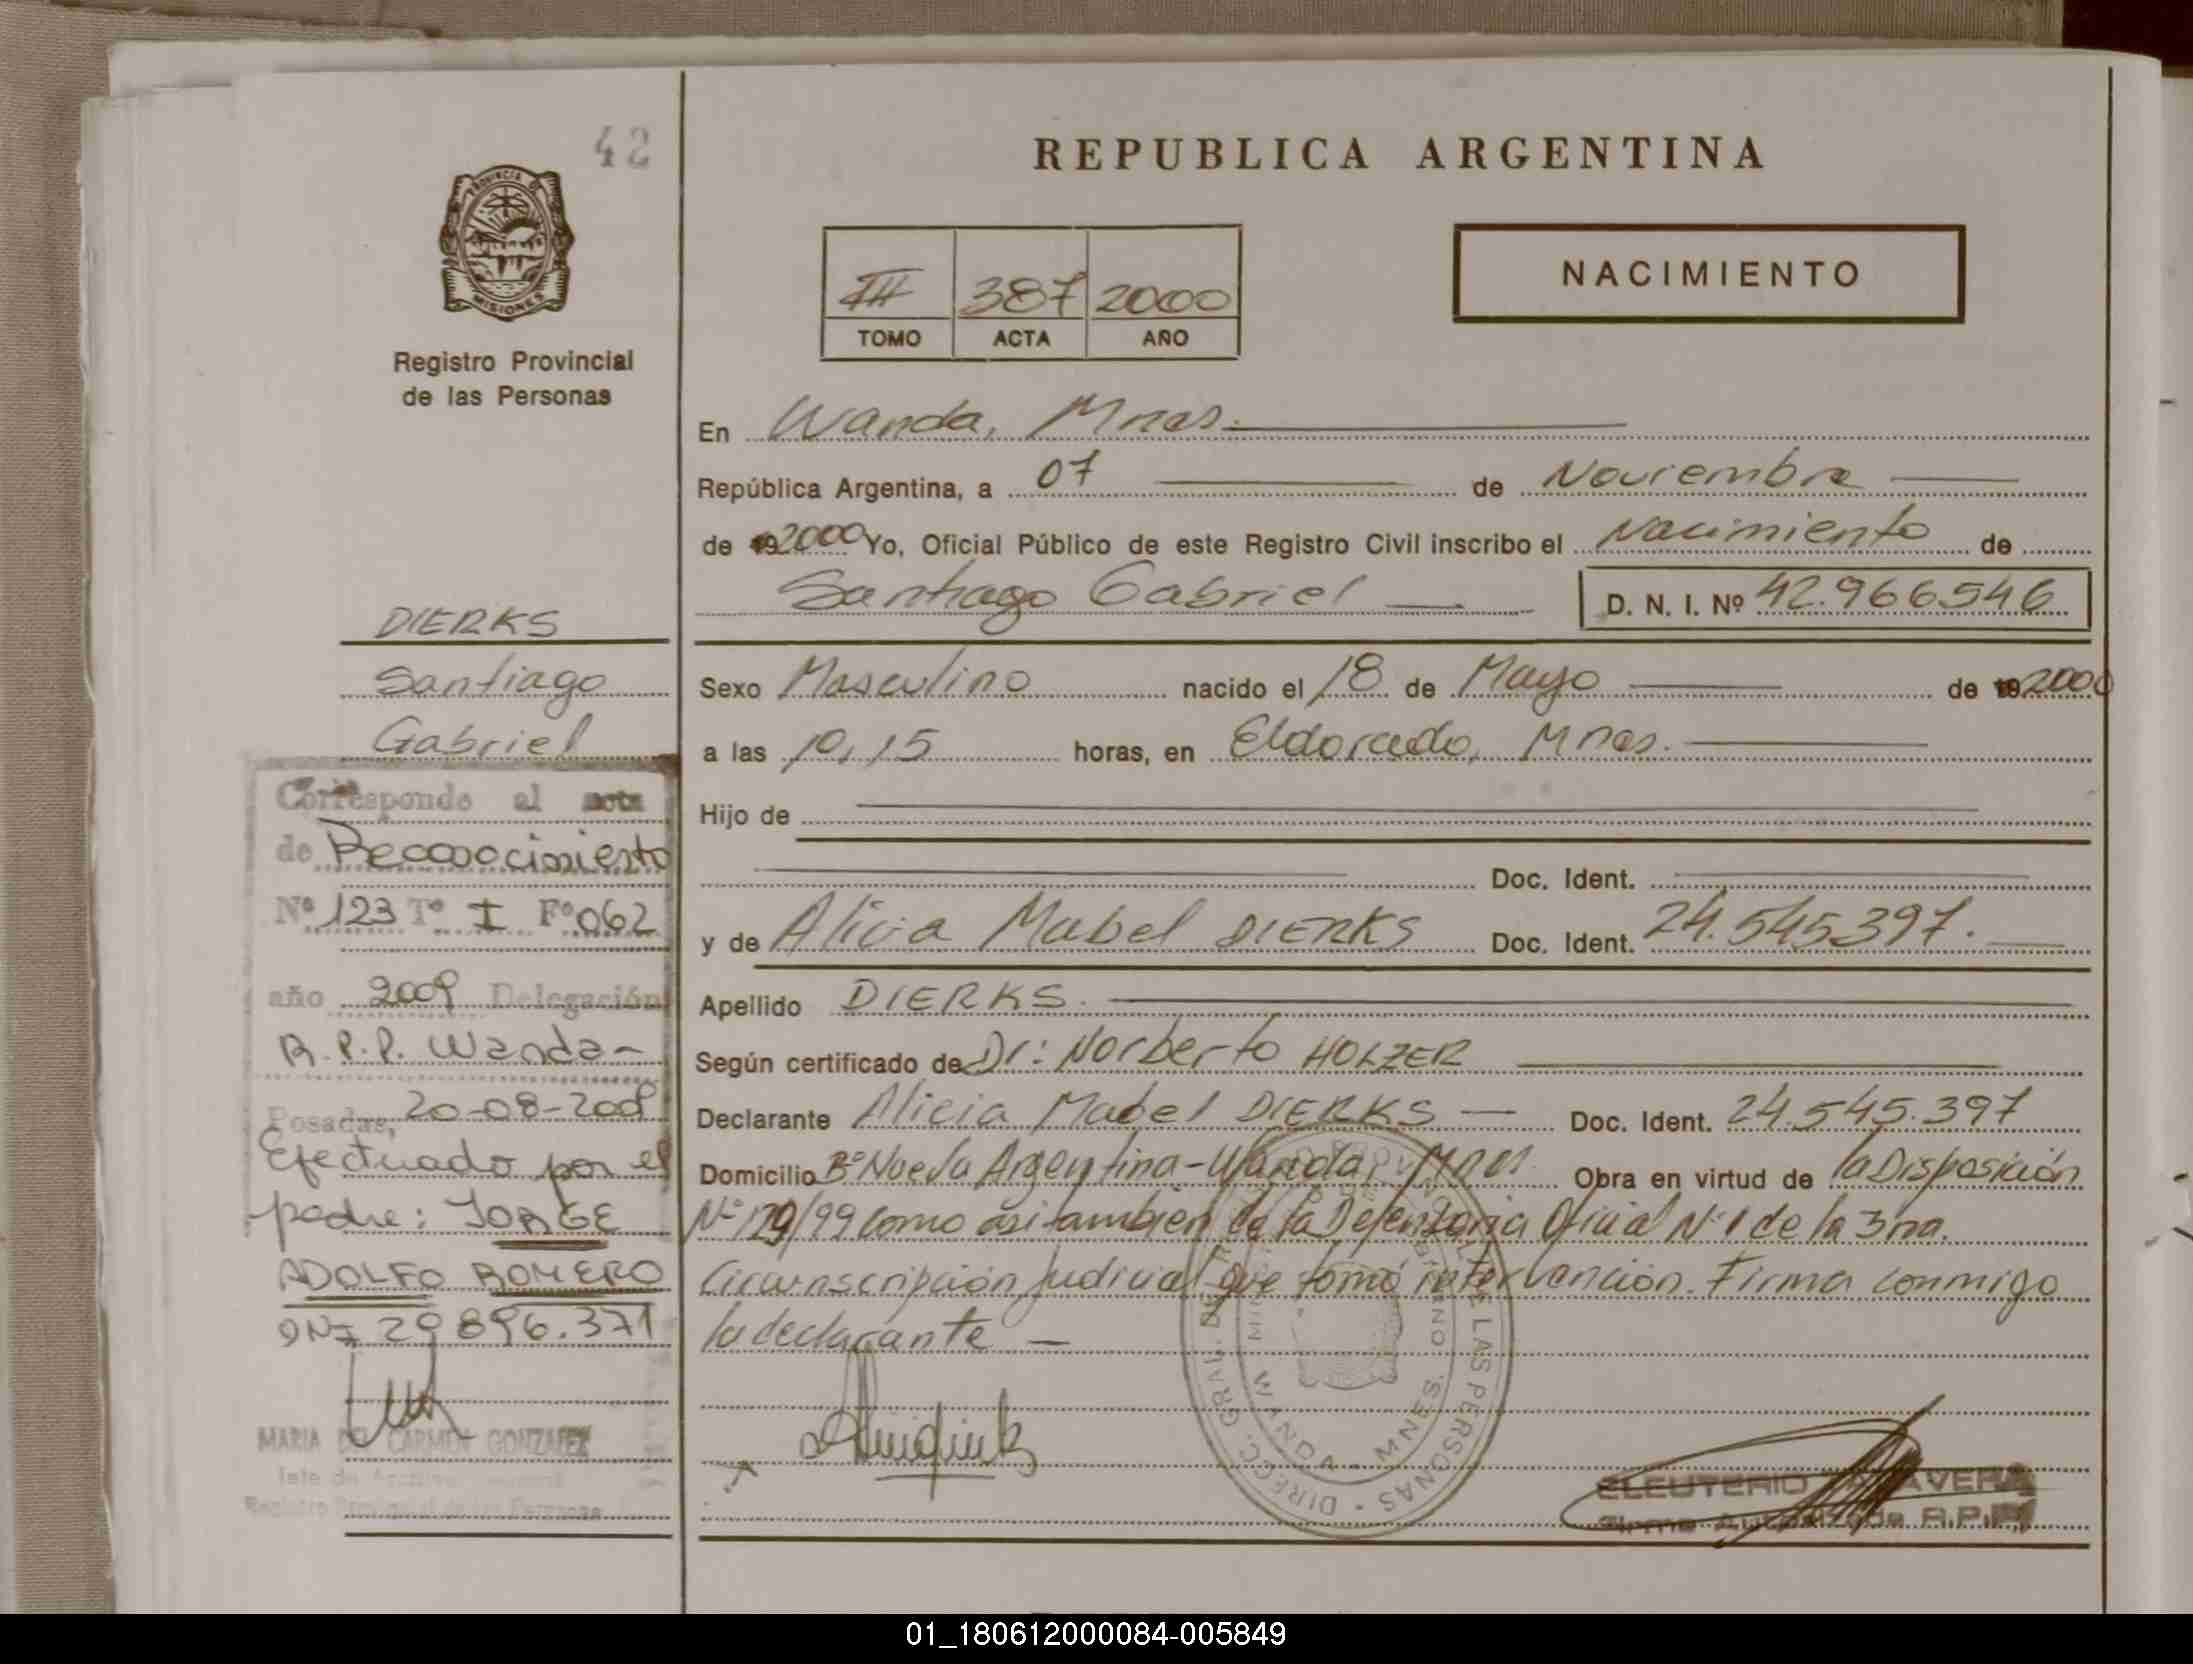 42
PROVINCIA DE
MISIONES
Registro Provincial
de las Personas
DIERKS
Santiago
Gabriel
Corresponde al acta
de Reconocimiento
Nº 123 Tº I Fº 062
año 2009 Delegación
R.P.P. Wanda-
Posadas, 20-08-2009
Efectuado por el
padre: JORGE
ADOLFO ROMERO
DNI 29896.371
MARIA DEL CARMEN GONZALEZ
Registro Provincial de las Personas
REPUBLICA ARGENTINA
III 387 2000
TOMO ACTA AÑO
NACIMIENTO
En Wanda, Mnes.
República Argentina, a 07 de Noviembre
de 192000 Yo, Oficial Público de este Registro Civil inscribo el Nacimiento de
Santiago Gabriel D. N. I. Nº 42.966.546
Sexo Masculino nacido el 18 de Mayo de 192000
a las 10,15 horas, en Eldorado, Mnes.
Hijo de
Doc. Ident.
y de Alicia Mabel DIERKS Doc. Ident. 24.545.397.
Apellido DIERKS.
Según certificado de Dr: Norberto HOLZER
Declarante Alicia Mabel DIERKS Doc. Ident. 24.545.397
Domicilio Bº Nueva Argentina-Wanda, Mnes. Obra en virtud de la Disposición
Nº 179/99 como asi tambien de la Defensoria Oficial Nº 1 de la 3ra.
Circunscripción Judicial que tomó intervención. Firma conmigo
la declarante
DIRECC. GRAL. DE LAS PERSONAS
WANDA - MNES.
ELEUTERIO TALAVERA
Firma Autorizada R.P.P.
01_180612000084-005849